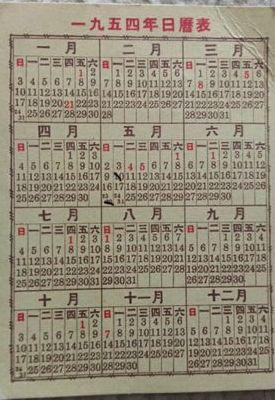 一九五四年日曆表
一月 二月 三月
日一二三四五六 日一二三四五六 日一二三四五六
1 2 1 2 3 4 5 6 1 2 3 4 5 6
3 4 5 6 7 8 9 7 8 9 10 11 12 13 7 8 9 10 11 12 13
10 11 12 13 14 15 16 14 15 16 17 18 19 20 14 15 16 17 18 19 20
17 18 19 20 21 22 23 21 22 23 24 25 26 27 21 22 23 24 25 26 27
24/31 25 26 27 28 29 30 28 28 29 30 31
四月 五月 六月
日一二三四五六 日一二三四五六 日一二三四五六
1 2 3 1 1 2 3 4 5
4 5 6 7 8 9 10 2 3 4 5 6 7 8 6 7 8 9 10 11 12
11 12 13 14 15 16 17 9 10 11 12 13 14 15 13 14 15 16 17 18 19
18 19 20 21 22 23 24 16 17 18 19 20 21 22 20 21 22 23 24 25 26
25 26 27 28 29 30 23/30 24/31 25 26 27 28 29 27 28 29 30
七月 八月 九月
日一二三四五六 日一二三四五六 日一二三四五六
1 2 3 1 2 3 4 5 6 7 1 2 3 4
4 5 6 7 8 9 10 8 9 10 11 12 13 14 5 6 7 8 9 10 11
11 12 13 14 15 16 17 15 16 17 18 19 20 21 12 13 14 15 16 17 18
18 19 20 21 22 23 24 22 23 24 25 26 27 28 19 20 21 22 23 24 25
25 26 27 28 29 30 31 29 30 31 26 27 28 29 30
十月 十一月 十二月
日一二三四五六 日一二三四五六 日一二三四五六
1 2 1 2 3 4 5 6 1 2 3 4
3 4 5 6 7 8 9 7 8 9 10 11 12 13 5 6 7 8 9 10 11
10 11 12 13 14 15 16 14 15 16 17 18 19 20 12 13 14 15 16 17 18
17 18 19 20 21 22 23 21 22 23 24 25 26 27 19 20 21 22 23 24 25
24/31 25 26 27 28 29 30 28 29 30 26 27 28 29 30 31